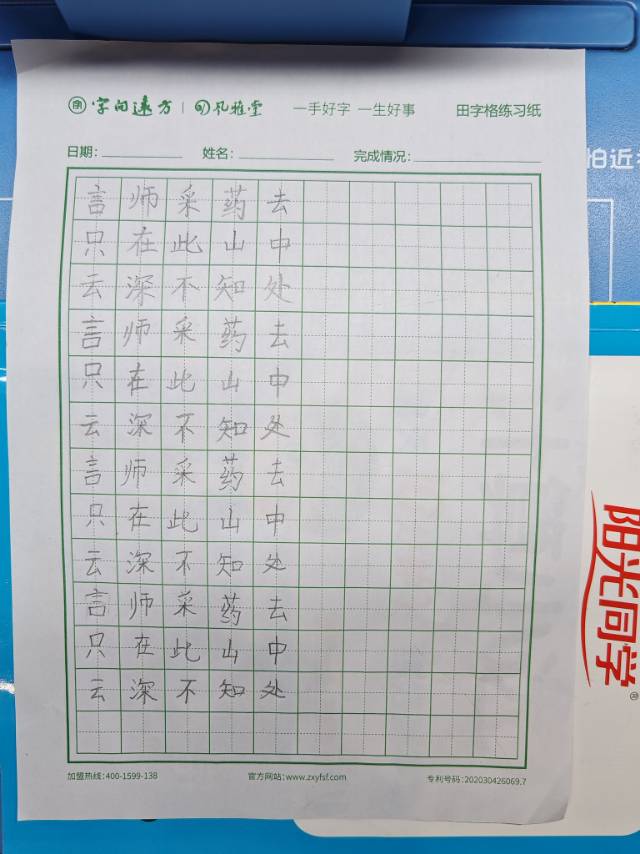 字间远方 | 风雅堂 一手好字 一生好事 田字格练习纸
日期: 姓名: 完成情况:
言师采药去
只在此山中
云深不知处
言师采药去
只在此山中
云深不知处
言师采药去
只在此山中
云深不知处
言师采药去
只在此山中
云深不知处
加盟热线:400-1599-138 官方网站:www.zxyfsf.com 专利号码:202030426069.7
怕近
阳光同学®